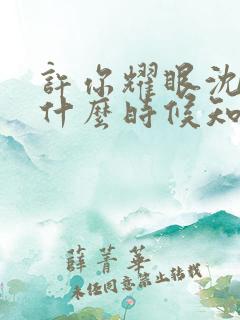 許你耀眼沈
什麼時候知
薛菁華
未經同意禁止轉載